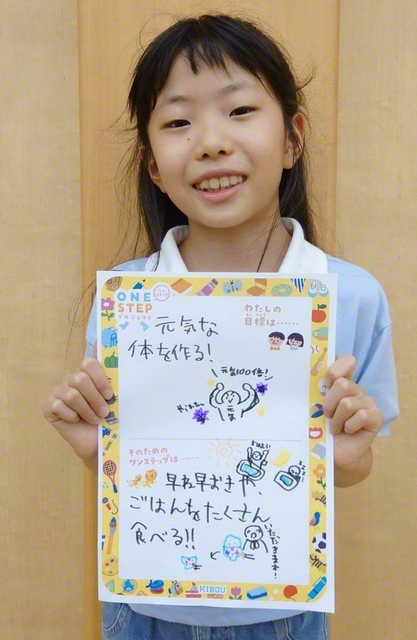 ONE
STEP
プロジェクト
わたしの
目標は……
元気な
体を作る!
元気100倍!
元気
そのための
ワンステップは……
早ね早おきや、
ごはんをたくさん
食べる!!
いただきます!
KIBOU